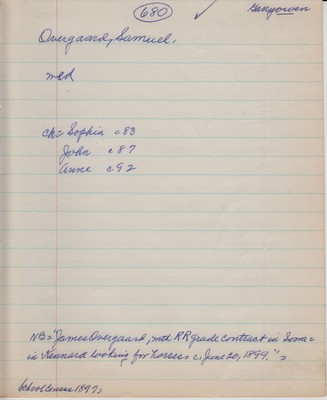 680 ✓ Garyowen
Overgaard, Samuel,
med
ch= Sophia c83
John c87
Anne c92
NB="James Overgaard, med RR grade contract in Iowa=
in Kennard looking for horses c. June 20, 1899."=
School Census 1897=